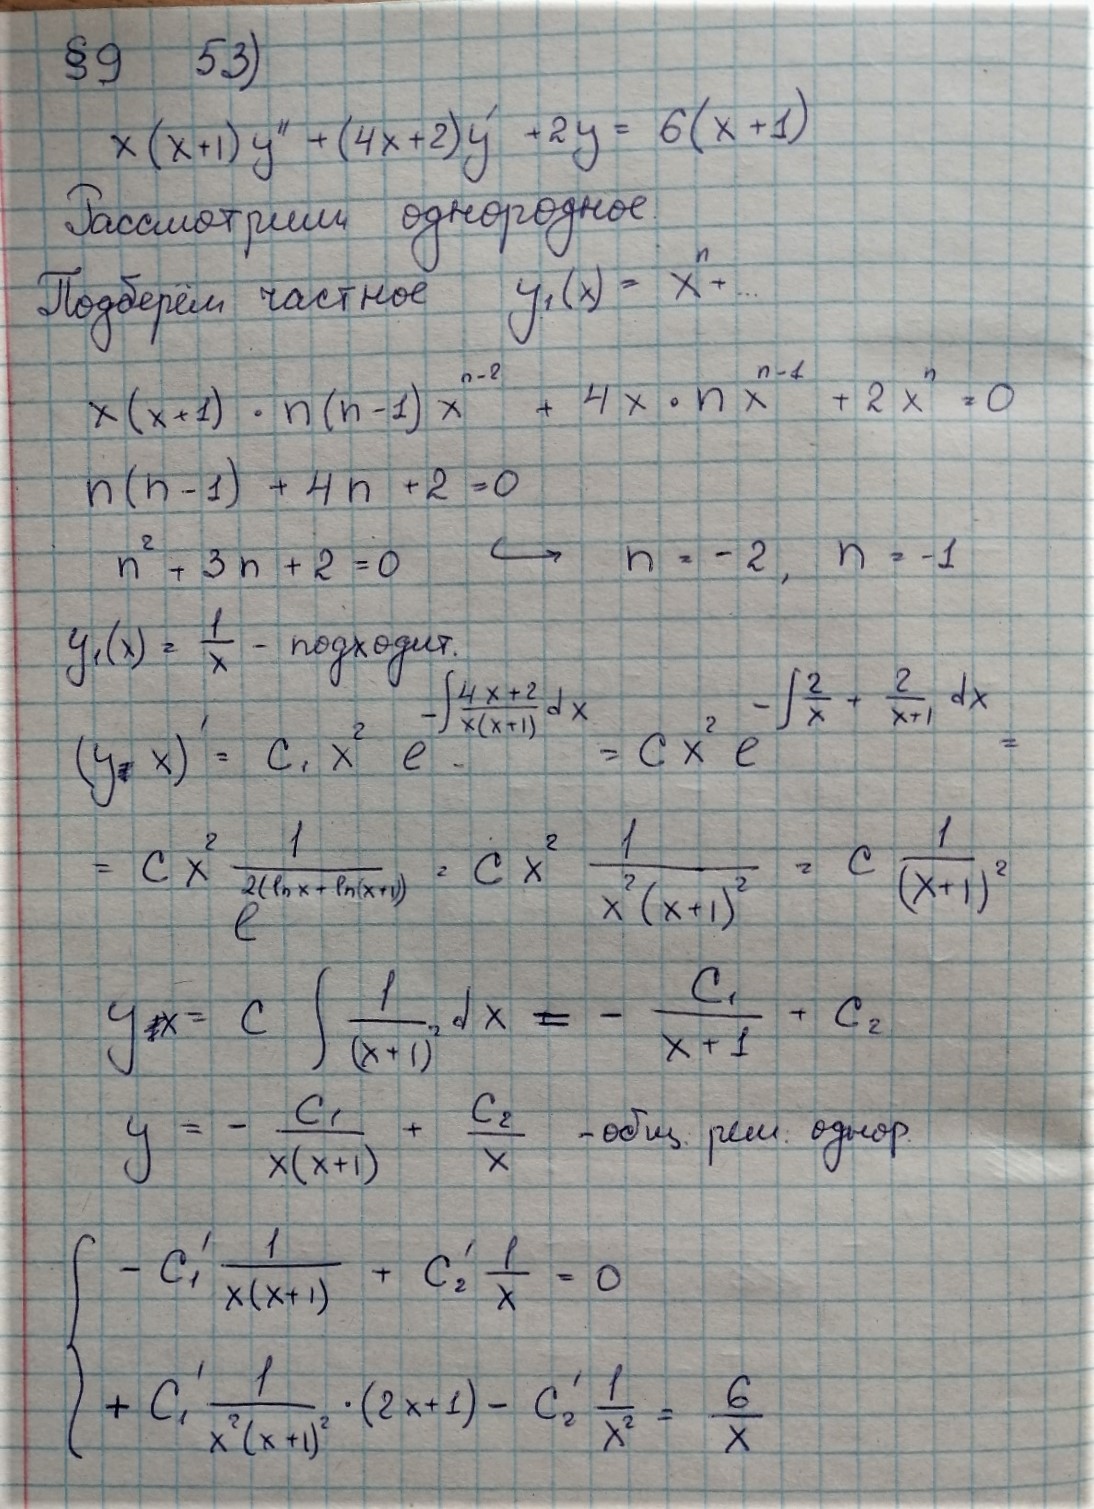 §9 53)
x(x+1)y'' + (4x+2)y' + 2y = 6(x+1)
Рассмотрим однородное.
Подберём частное y₁(x) = xⁿ + ...
x(x+1) · n(n-1)xⁿ⁻² + 4x · nxⁿ⁻¹ + 2xⁿ = 0
n(n-1) + 4n + 2 = 0
n² + 3n + 2 = 0 ↪ n = -2, n = -1
y₁(x) = 1/x - подходит.
(y x)' = C₁ x² e^(-∫(4x+2)/(x(x+1)) dx) = C x² e^(-∫ 2/x + 2/(x+1) dx) =
= C x² 1/e^(2(ln x + ln(x+1)) = C x² 1/(x²(x+1)²) = C 1/(x+1)²
y x = C ∫ 1/(x+1)² dx = - C₁/(x+1) + C₂
y = - C₁/(x(x+1)) + C₂/x - общ. реш. однор.
{ - C₁' 1/(x(x+1)) + C₂' 1/x = 0
+ C₁' 1/(x²(x+1)²) · (2x+1) - C₂' 1/x² = 6/x